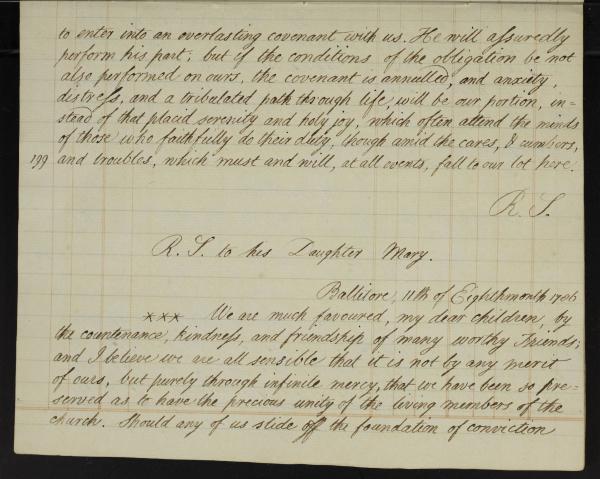 to enter into an overlasting covenant with us. He will assuredly
perform his part; but if the conditions of the obligation be not
also performed on ours, the covenant is annulled, and anxiety,
distress, and a tribulated path through life, will be our portion, in=
stead of that placid serenity and holy joy, which often attend the minds
of those who faithfully do their duty, though amid the cares, & cumbers,
199 and troubles, which must and will, at all events, fall to our lot here.
R. S.
R. S. to his Daughter Mary.
Ballitore, 11th of Eighthmonth 1786
xxx We are much favoured, my dear children, by
the countenance, kindness, and friendship of many worthy Friends;
and I believe we are all sensible that it is not by any merit
of ours, but purely through infinite mercy, that we have been so pre=
served as to have the precious unity of the living members of the
church. Should any of us slide off the foundation of conviction